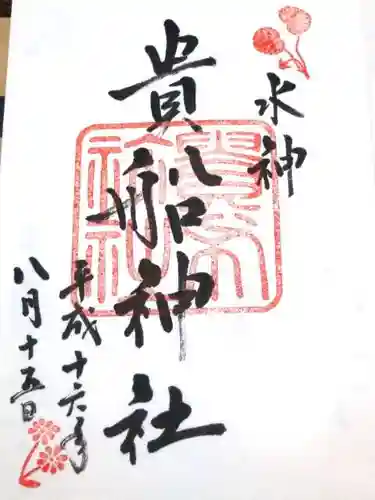 水神
貴船神社
平成十六年
八月十五日